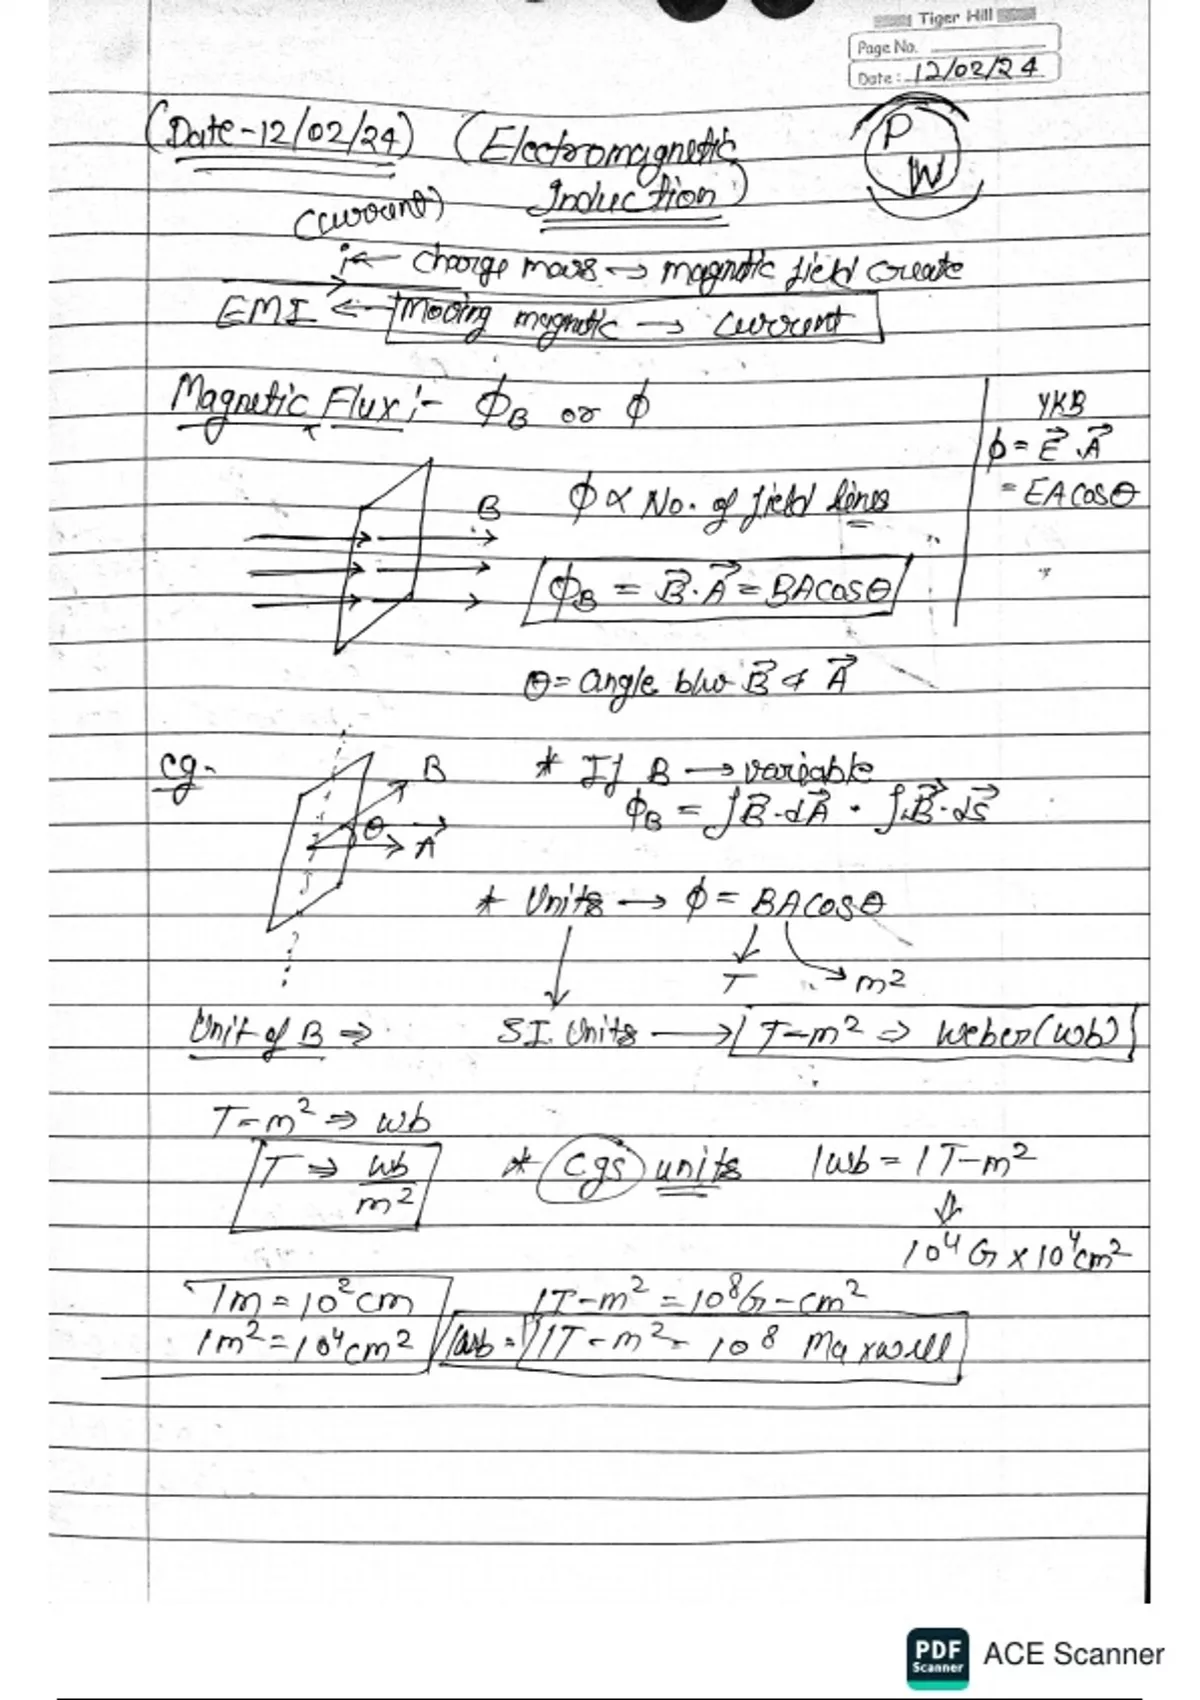 Tiger Hill
Page No.
Date: 12/02/24
(Date-12/02/24) (Electromagnetic
Induction)
P
W
(current)
i ← charge mov8 → magnetic field create
EMI ← Moving magnetic → current
Magnetic Flux :- ϕB or ϕ
YKB
ϕ = E⃗ . A⃗
= EA cosθ
B
ϕ ∝ No. of field lines
ϕB = B⃗ . A⃗ = BA cosθ
θ = angle b/w B⃗ & A⃗
eg-
B
θ
A⃗
* If B → variable
ϕB = ∫B⃗ . dA⃗ = ∫B⃗ . ds⃗
* Units → ϕ = BA cosθ
T m²
Unit of B ⇒ S.I. Units → T-m² ⇒ Weber (wb)
T-m² ⇒ wb
T ⇒ wb/m²
* cgs units 1wb = 1T-m²
⇓
10⁴ G × 10⁴ cm²
1m = 10² cm
1m² = 10⁴ cm²
1T-m² = 10⁸ G-cm²
1wb = 1T-m² = 10⁸ Maxwell
PDF
Scanner
ACE Scanner